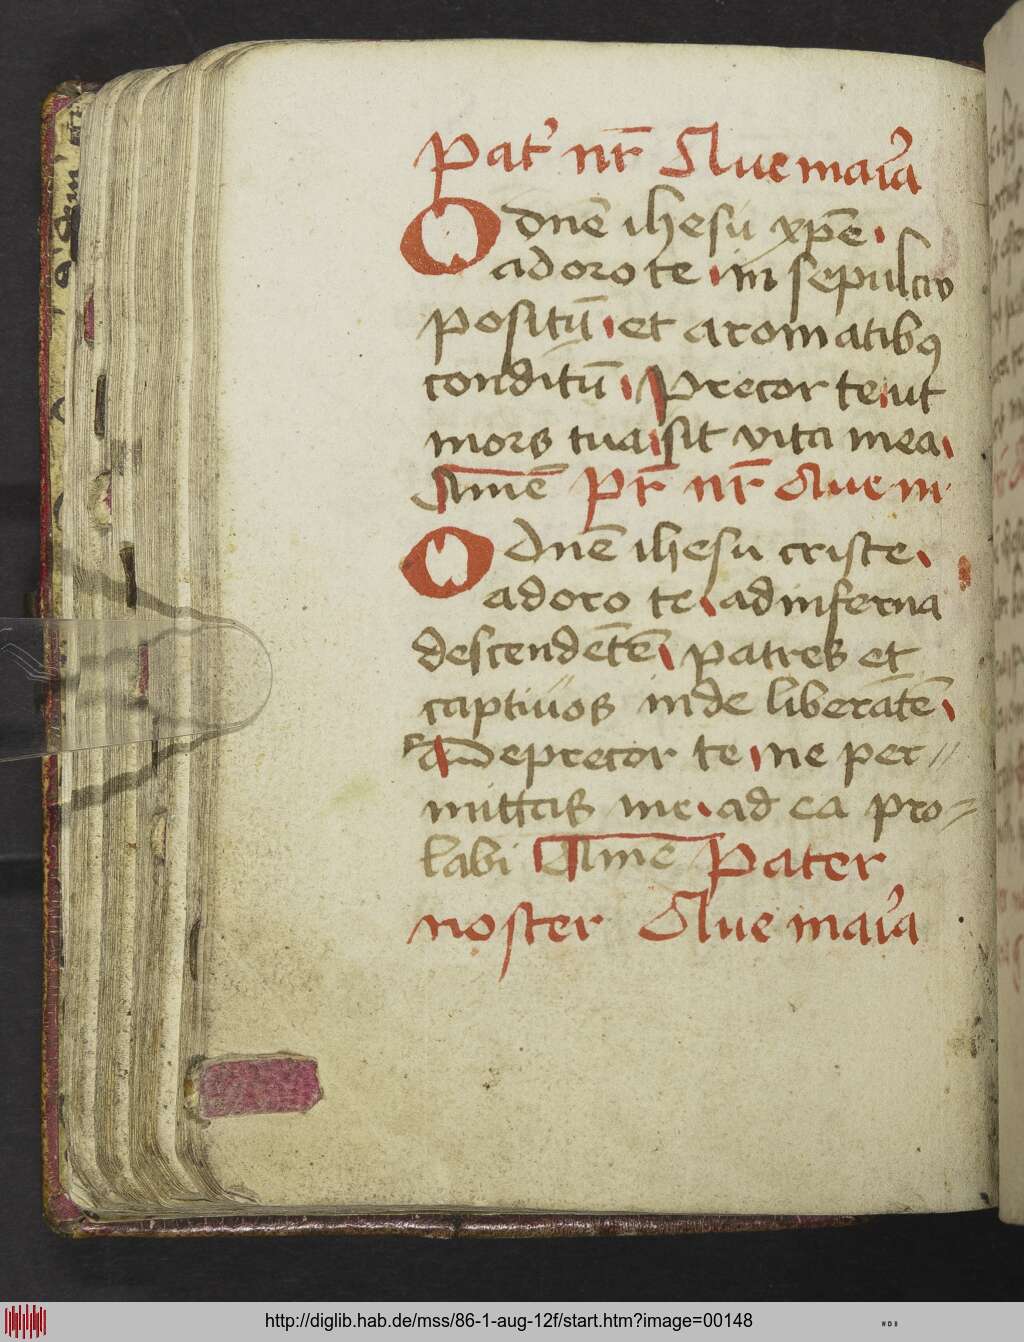 Pat' nr̄ Aue mar'a
O dn̄e ihesu xp̄e
adoro te in sepulcro
positū et aromatibꝯ
conditū Precor te ut
mors tua sit vita mea
Amē Pr̄ nr̄ Aue m
O dn̄e ihesu criste
adoro te ad inferna
descendētē patres et
captiuos inde liberātē
Deprecor te ne per⸗
mittas me ad ea pro⸗
labi Amē Pater
noster Aue mar'a
http://diglib.hab.de/mss/86-1-aug-12f/start.htm?image=00148